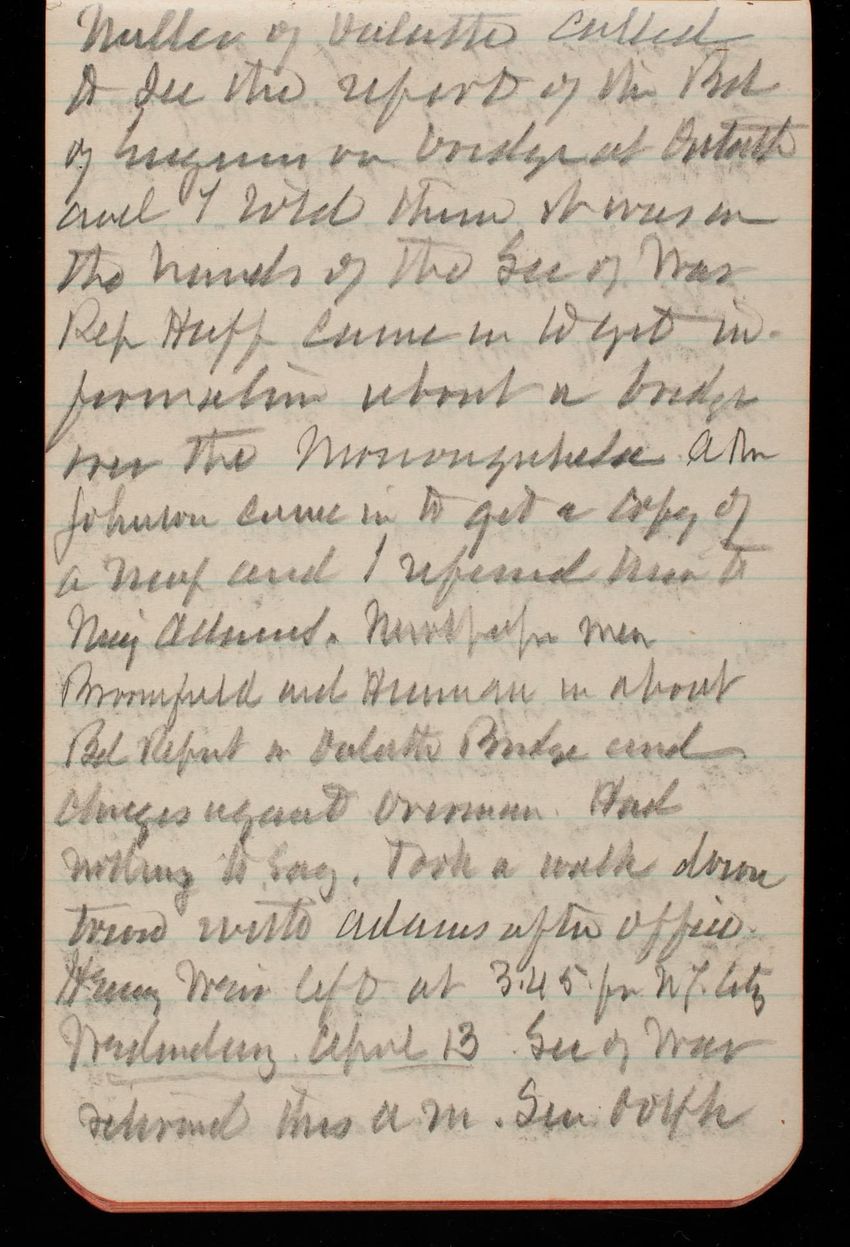 Miller of Duluth called
to see the report of the Bd
of Engineers on bridge at Duluth
and I told them it was in
the hands of the Sec of War
Rep Huff came in to get in-
formation about a bridge
over the Monongahela. A Mr
Johnson came in to get a copy of
a map and I referred him to
Maj Adams. Newspaper men
Broomfield and Human in about
Bd Report on Duluth Bridge and
Charges against Overman. Had
nothing to say. Took a walk down
town with Adams after office.
Henry Weir left at 3.45 for N.Y. City
Wednesday. April 13. Sec of War
returned this A M. Sen Dolph